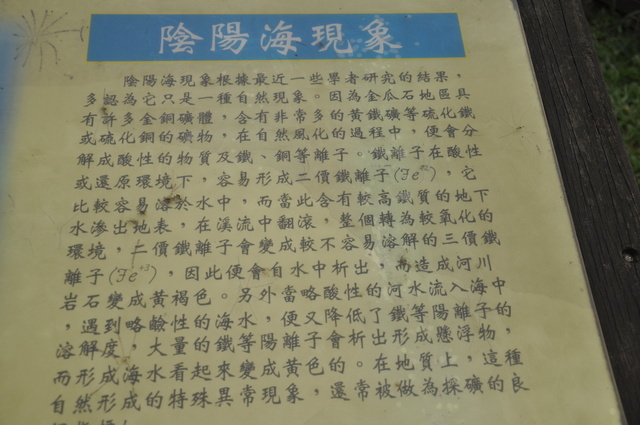 陰陽海現象
陰陽海現象根據最近一些學者研究的結果，
多認為它只是一種自然現象。因為金瓜石地區具
有許多金銅礦體，含有非常多的黃鐵礦等硫化鐵
或硫化銅的礦物，在自然風化的過程中，便會分
解成酸性的物質及鐵、銅等離子。鐵離子在酸性
或還原環境下，容易形成二價鐵離子(Fe⁺²)，它
比較容易溶於水中，而當此含有較高鐵質的地下
水滲出地表，在溪流中翻滾，整個轉為較氧化的
環境，二價鐵離子會變成較不容易溶解的三價鐵
離子(Fe⁺³)，因此便會自水中析出，而造成河川
岩石變成黃褐色。另外當略酸性的河水流入海中
，遇到略鹼性的海水，便又降低了鐵等陽離子的
溶解度，大量的鐵等陽離子會析出形成懸浮物，
而形成海水看起來變成黃色的。在地質上，這種
自然形成的特殊異常現象，還常被做為採礦的良